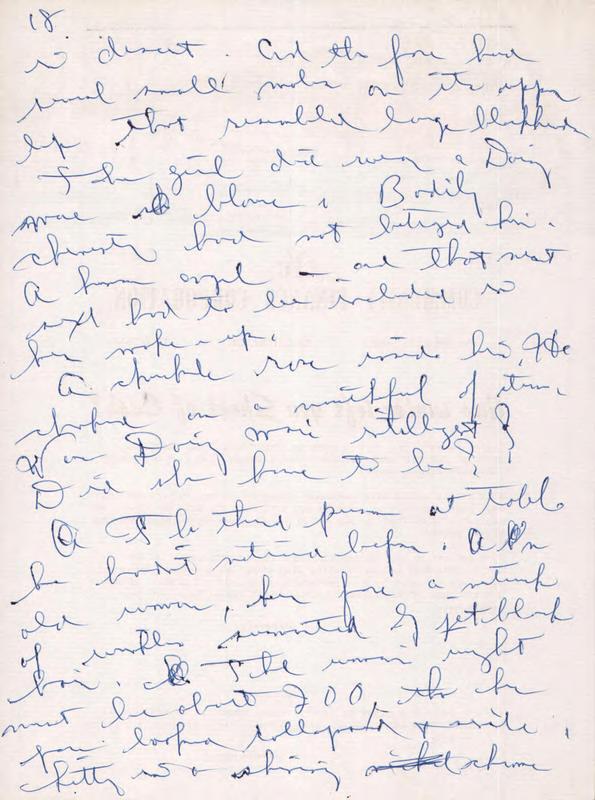 18
in desert. And the face had
several small moles on its upper
lip that resembled large blackheads
The girl did wear a Daisy
Mae blouse; Bodily
chemistry had not betrayed him.
A human angel — and that meant
sex had to be included in
her make-up.
A chuckle rose inside him, He
choked on a mouthful of
Was Daisy Mae intelligent?
Did she have to be?
The third person at table
he hadn't noticed before. An
old woman, her face a network
of wrinkles surmounted by jet black
hair. The woman
must be about 200, tho her
looked collapsed &
in a shiny chrome